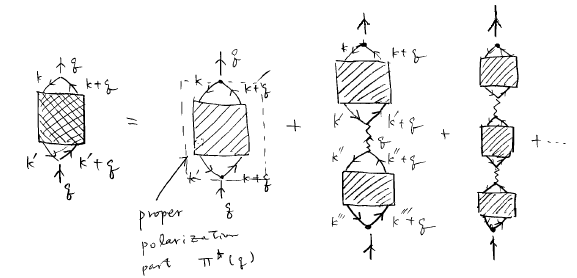 q
k k+q
k' k'+q
q
=
q
k k+q
k' k+q
q
proper
polarization
part π*(q)
+
k k+q
k' k'+q
q
k'' k''+q
k''' k'''+q
+
+ ...